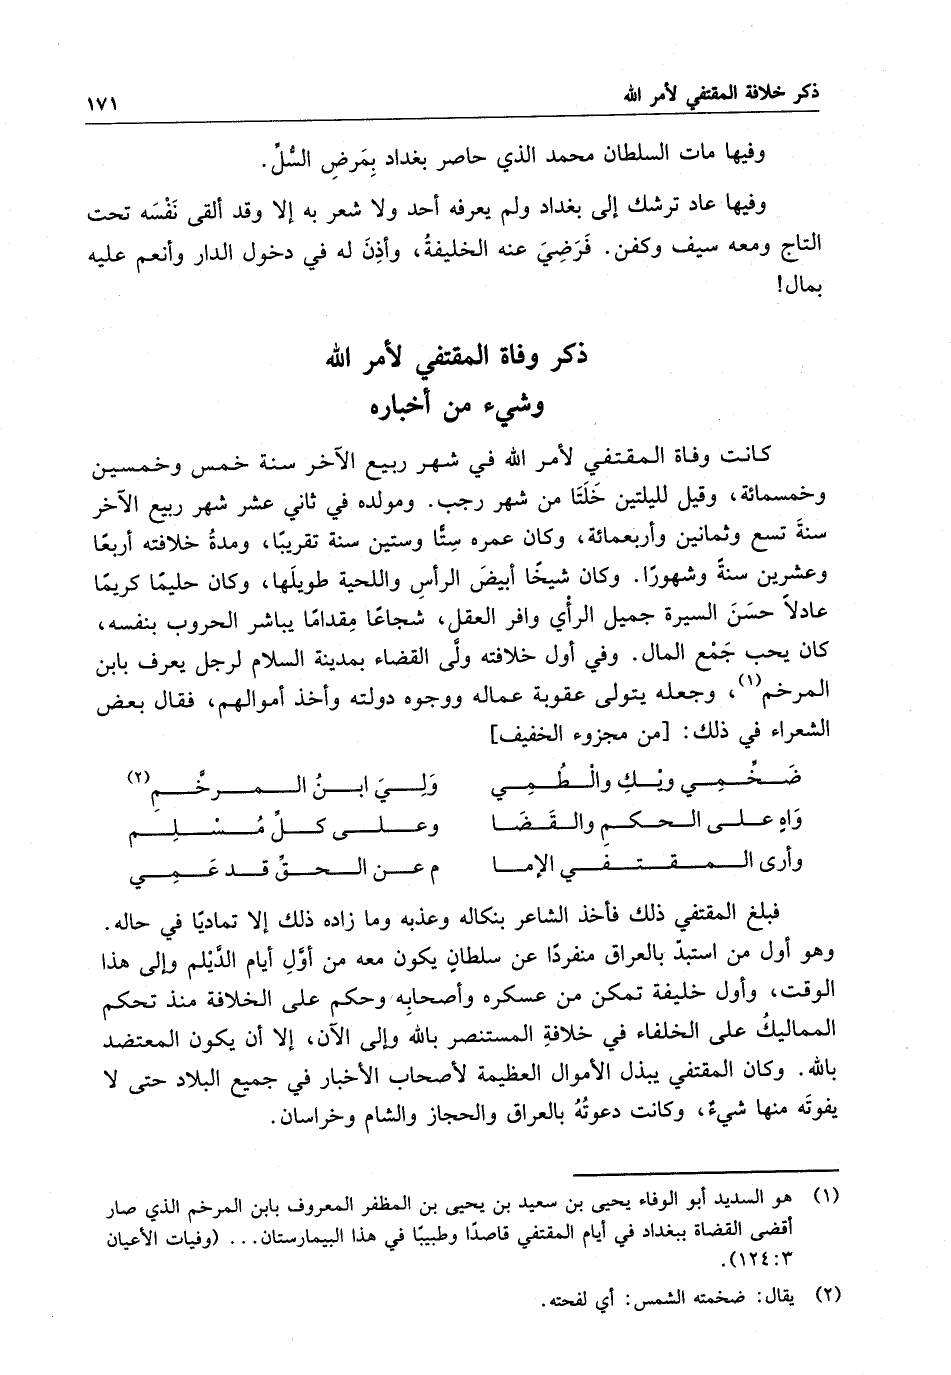 ذكر خلافة المقتفي لأمر الله ١٧١
وفيها مات السلطان محمد الذي حاصر بغداد بِمَرضِ السُّلِّ.
وفيها عاد ترشك إلى بغداد ولم يعرفه أحد ولا شعر به إلا وقد ألقى نَفْسَه تحت
التاج ومعه سيف وكفن. فَرَضِيَ عنه الخليفةُ، وأذِنَ له في دخول الدار وأنعم عليه
بمال!
ذكر وفاة المقتفي لأمر الله
وشيء من أخباره
كانت وفاة المقتفي لأمر الله في شهر ربيع الآخر سنة خمس وخمسين
وخمسمائة، وقيل لليلتين خَلَتَا من شهر رجب. ومولده في ثاني عشر شهر ربيع الآخر
سنةَ تسع وثمانين وأربعمائة، وكان عمره سِتًّا وستين سنة تقريبًا، ومدةُ خلافته أربعًا
وعشرين سنةً وشهورًا. وكان شيخًا أبيضَ الرأسِ واللحية طويلَها، وكان حليمًا كريمًا
عادلاً حسَنَ السيرة جميل الرأي وافر العقل، شجاعًا مِقدامًا يباشر الحروب بنفسه،
كان يحب جَمْع المال. وفي أول خلافته ولَّى القضاء بمدينة السلام لرجل يعرف بابن
المرخم(١)، وجعله يتولى عقوبة عماله ووجوه دولته وأخذ أموالهم، فقال بعض
الشعراء في ذلك: [من مجزوء الخفيف]
ضَخِّمِي ويْكِ والْطُمِي وَلِيَ ابنُ المرخَّمِ(٢)
وَاهِ على الحكمِ والقَضَا وعلى كلِّ مُسْلِمِ
وأرى المقتفي الإما م عن الحقِّ قد عَمِي
فبلغ المقتفي ذلك فأخذ الشاعر بنكاله وعذبه وما زاده ذلك إلا تماديًا في حاله.
وهو أول من استبدّ بالعراق منفردًا عن سلطانٍ يكون معه من أوَّلِ أيام الدَّيْلم وإلى هذا
الوقت، وأول خليفة تمكن من عسكره وأصحابِه وحكم على الخلافة منذ تحكم
المماليكُ على الخلفاء في خلافةِ المستنصر بالله وإلى الآن، إلا أن يكون المعتضد
بالله. وكان المقتفي يبذل الأموال العظيمة لأصحاب الأخبار في جميع البلاد حتى لا
يفوتَه منها شيءٌ، وكانت دعوتُهُ بالعراق والحجاز والشام وخراسان.
(١) هو السديد أبو الوفاء يحيى بن سعيد بن يحيى بن المظفر المعروف بابن المرخم الذي صار
أقضى القضاة ببغداد في أيام المقتفي قاصدًا وطبيبًا في هذا البيمارستان... (وفيات الأعيان
٣:١٢٤).
(٢) يقال: ضخمته الشمس: أي لفحته.